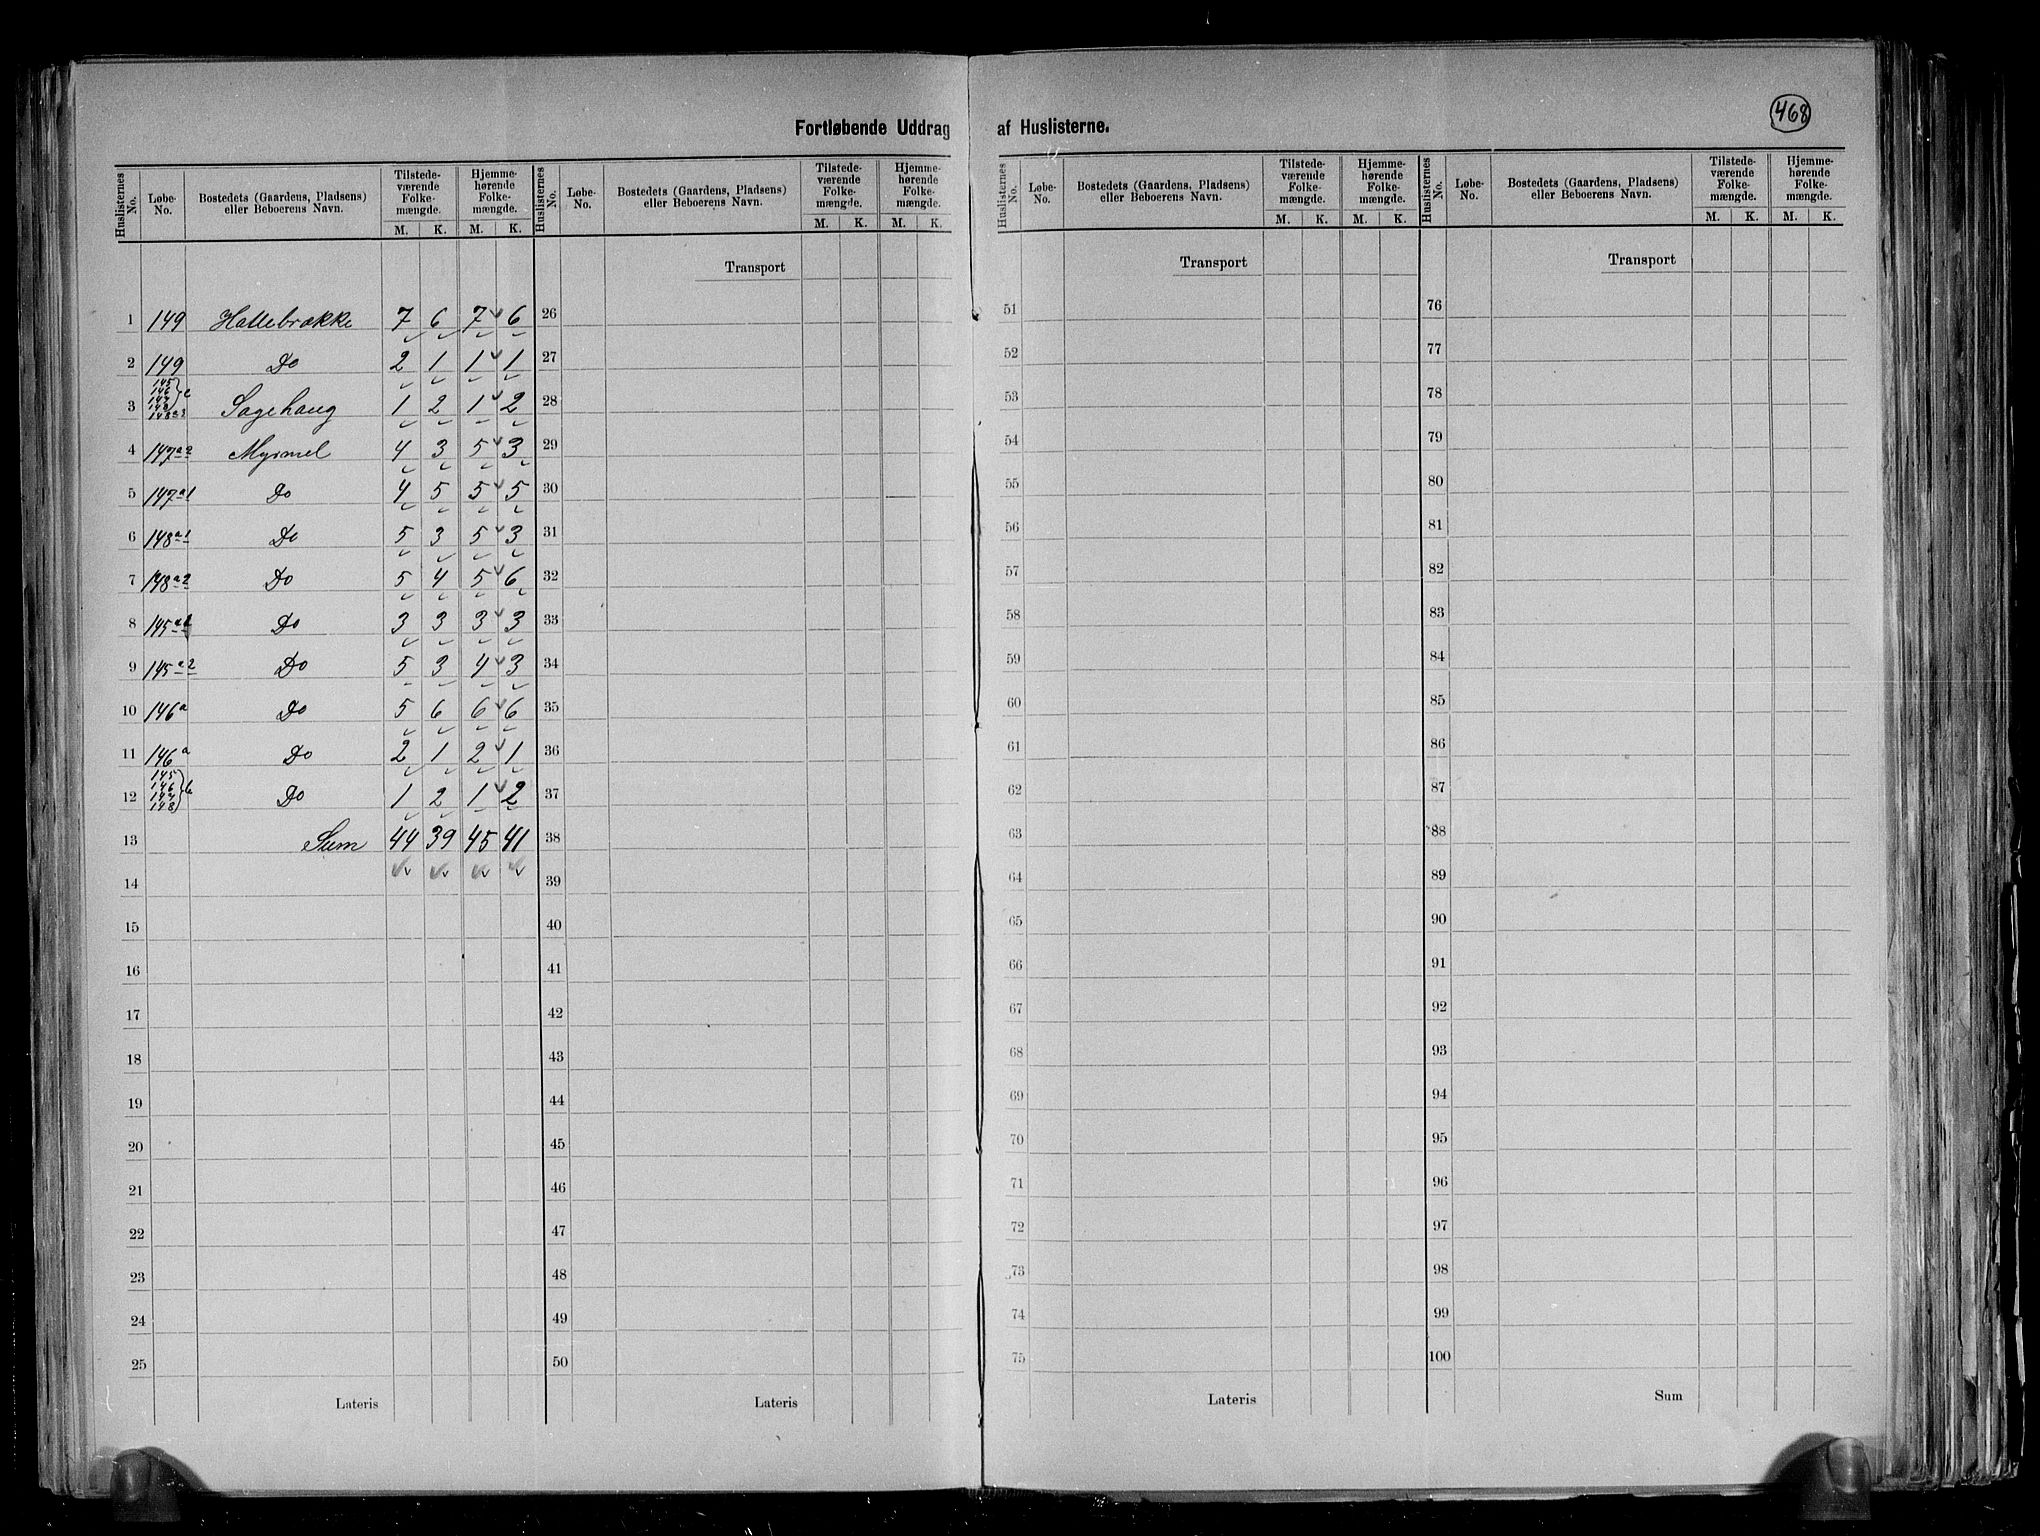 468
Fortløbende Uddrag af Huslisterne.
Huslisternes No. Løbe-No. Bostedets (Gaardens, Pladsens) eller Beboerens Navn. Tilstede-værende Folke-mængde. M. K. Hjemme-hørende Folke-mængde. M. K.
Huslisternes No. Løbe-No. Bostedets (Gaardens, Pladsens) eller Beboerens Navn. Tilstede-værende Folke-mængde. M. K. Hjemme-hørende Folke-mængde. M. K.
Huslisternes No. Løbe-No. Bostedets (Gaardens, Pladsens) eller Beboerens Navn. Tilstede-værende Folke-mængde. M. K. Hjemme-hørende Folke-mængde. M. K.
Huslisternes No. Løbe-No. Bostedets (Gaardens, Pladsens) eller Beboerens Navn. Tilstede-værende Folke-mængde. M. K. Hjemme-hørende Folke-mængde. M. K.
Transport Transport Transport
1 149 Hattebrække 7 6 7 6 26 51 76
2 149 Do 2 1 1 1 27 52 77
3 145 146 147 148 Sagehaug 1 2 1 2 28 53 78
4 147a2 Myrmel 4 3 5 3 29 54 79
5 147a1 Do 4 5 5 5 30 55 80
6 148a1 Do 5 3 5 3 31 56 81
7 148a2 Do 5 4 5 6 32 57 82
8 145a1 Do 3 3 3 3 33 58 83
9 145a2 Do 5 3 4 3 34 59 84
10 146a Do 5 6 6 6 35 60 85
11 146a Do 2 1 2 1 36 61 86
12 145 146 147 148 b Do 1 2 1 2 37 62 87
13 Sum 44 39 45 41 38 63 88
14 39 64 89
15 40 65 90
16 41 66 91
17 42 67 92
18 43 68 93
19 44 69 94
20 45 70 95
21 46 71 96
22 47 72 97
23 48 73 98
24 49 74 99
25 50 75 100
Lateris Lateris Lateris Sum